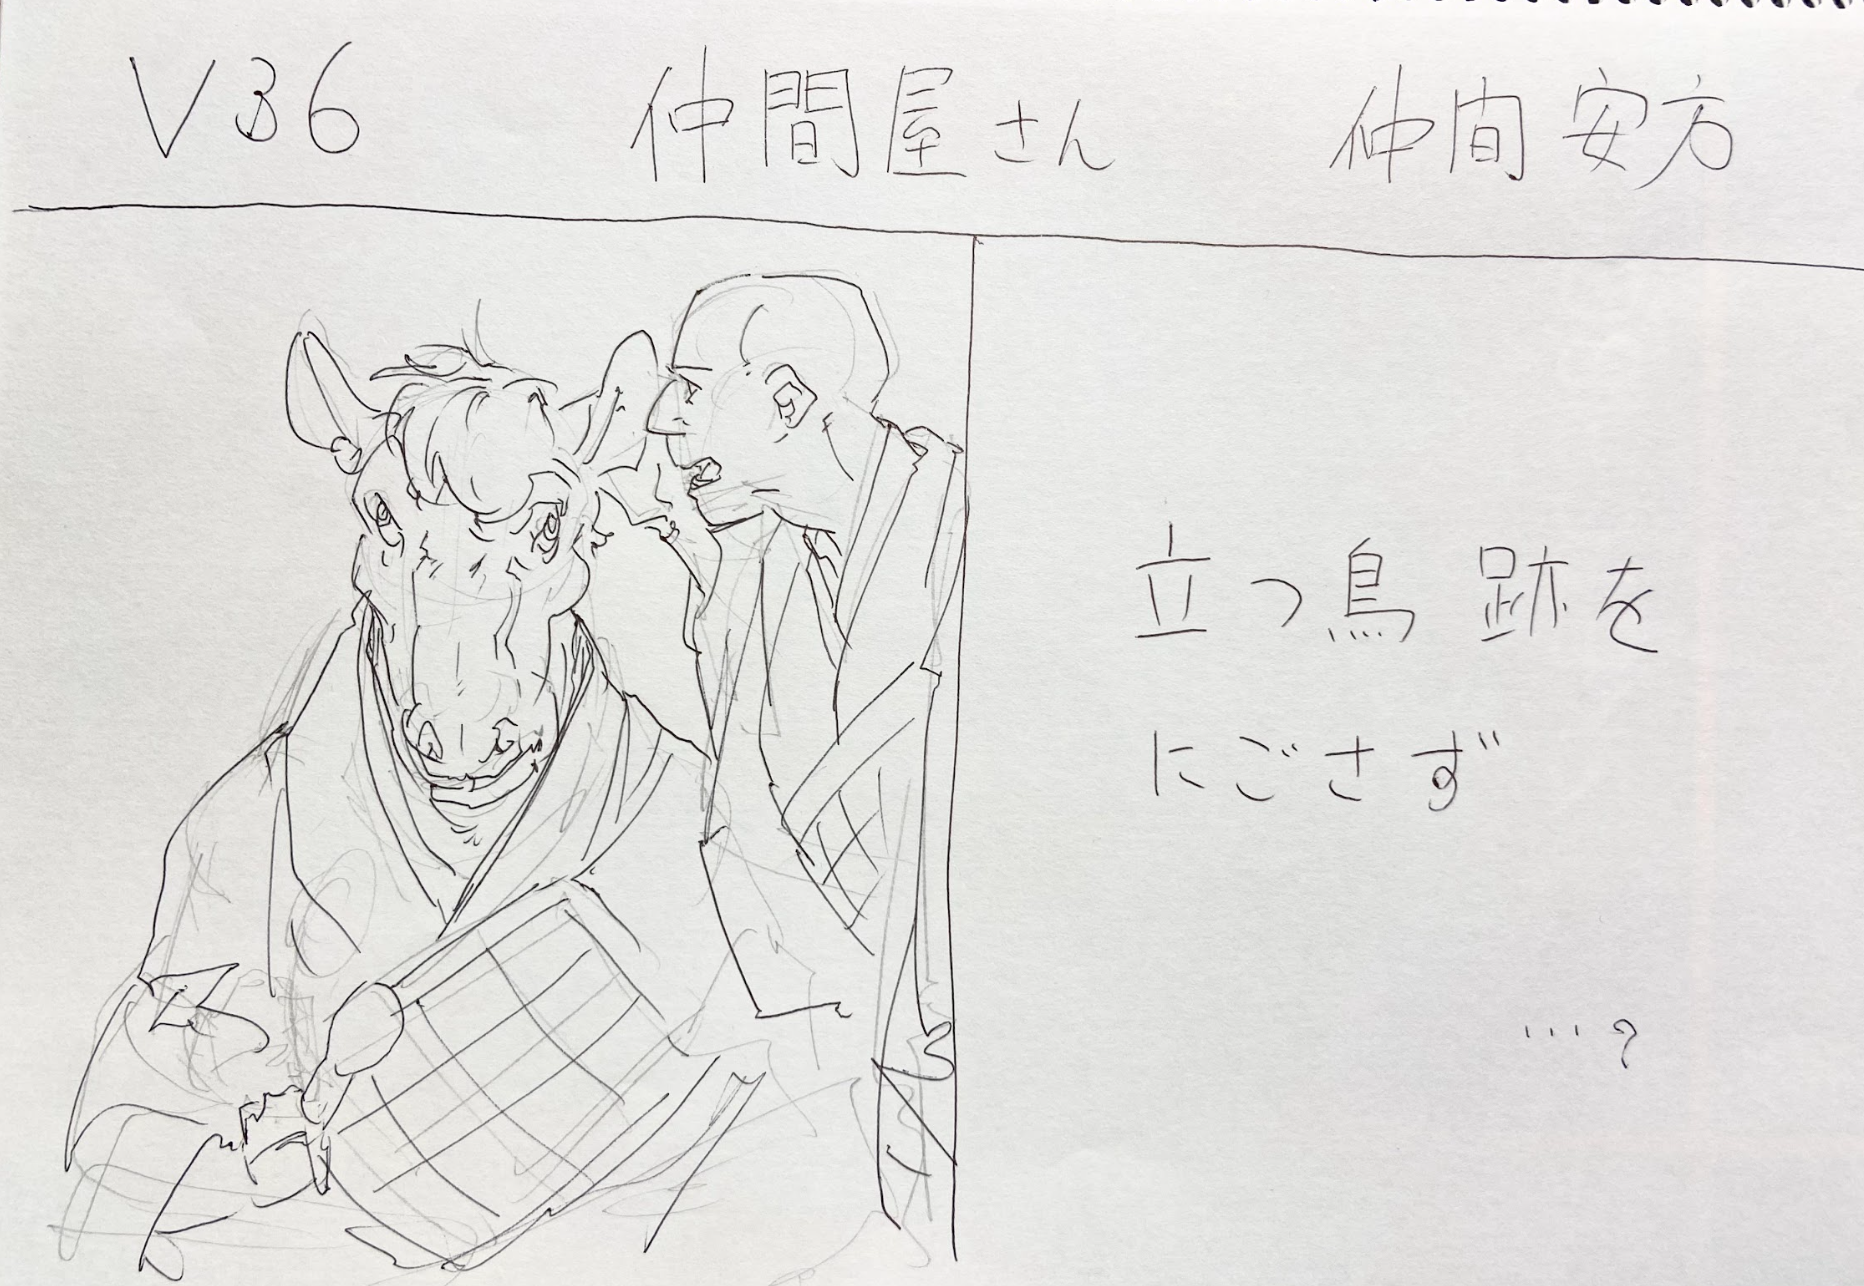 V36 仲間屋さん 仲間安方
立つ鳥 跡を
にごさず
…?